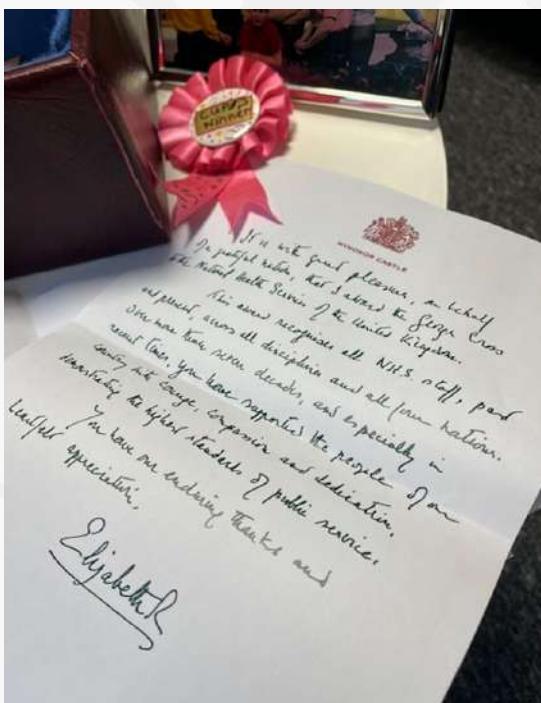 CUPS
WINNER
WINDSOR CASTLE
It is with great pleasure, on behalf
of a grateful nation, that I award the George Cross
to the National Health Services of the United Kingdom.
This award recognises all N.H.S. staff, past
and present, across all disciplines and all four nations.
Over more than seven decades, and especially in
recent times, you have supported the people of our
country with courage, compassion and dedication,
demonstrating the highest standards of public service.
You have our enduring thanks and
heartfelt appreciation.
Elizabeth R